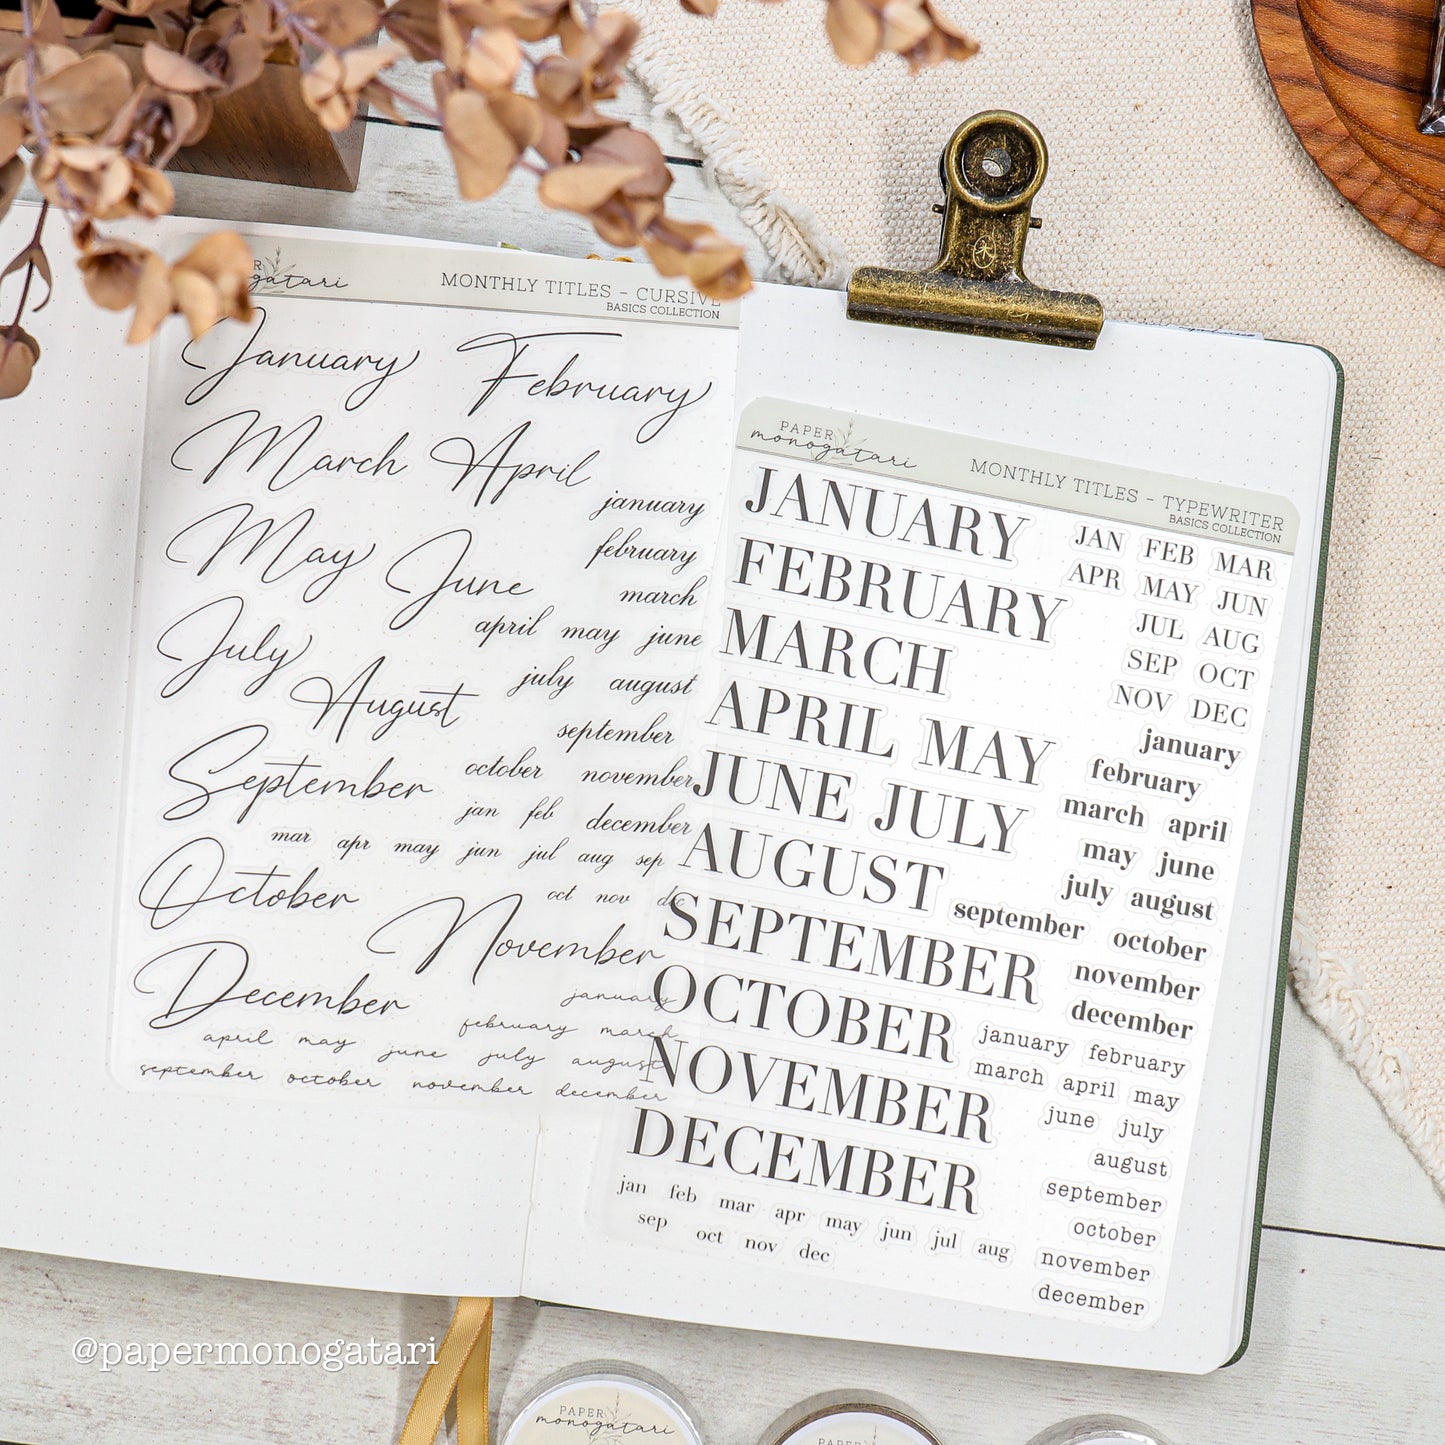 monogatari
MONTHLY TITLES - CURSIVE
BASICS COLLECTION
January February
March April
january
May June
february
march
July
april may june
july august
August
september
September
october november
jan feb december
mar apr may jun jul aug sep
October
oct nov dec
November
December
january
february march
april may june july august
september october november december
PAPER
monogatari
MONTHLY TITLES - TYPEWRITER
BASICS COLLECTION
JANUARY
JAN FEB MAR
FEBRUARY
APR MAY JUN
MARCH
JUL AUG
SEP OCT
APRIL MAY
NOV DEC
january
JUNE JULY
february
march april
AUGUST
may june
july august
SEPTEMBER
september october
november
OCTOBER
december
january february
NOVEMBER
march april may
june july
DECEMBER
august
september
jan feb mar apr may jun jul aug
october
sep oct nov dec
november
december
@papermonogatari
PAPER
monogatari
PAPER